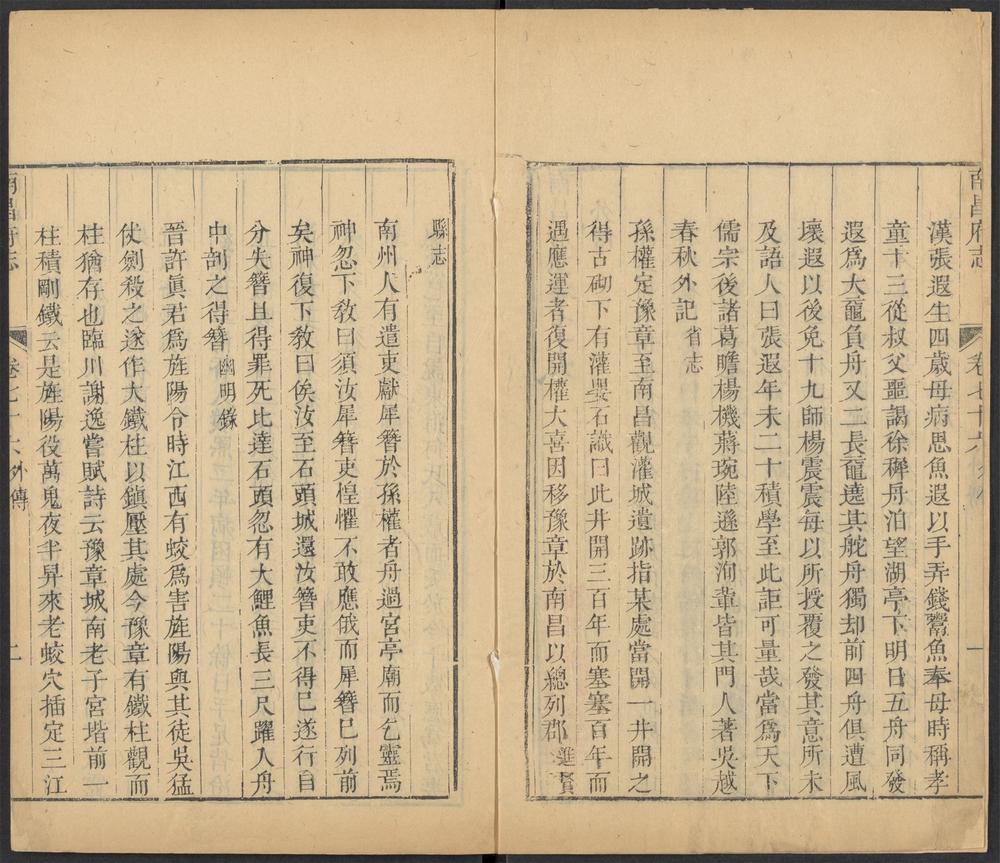 南昌府志
卷七十六
一
漢張遐生四歲母病思魚遐以手弄錢鬻魚奉母時稱孝
童十三從叔父噩謁徐穉舟泊望湖亭下明日五舟同發
遐爲大黿負舟又二長龍遶其舵舟獨却前四舟俱遭風
壞遐以後免十九師楊震震每以所授覆之發其意所未
及語人曰張遐年未二十積學至此詎可量哉當爲天下
儒宗後諸葛瞻楊機蔣琬陸遜郭洵輩皆其門人著吳越
春秋外記 省志
孫權定豫章至南昌觀灌城遺跡指某處當開一井開之
得古砌下有灌嬰石識曰此井開三百年而塞塞百年而
遇應運者復開權大喜因移豫章於南昌以總列郡 進賢
縣志
南州人有遣吏獻犀簪於孫權者舟過宮亭廟而乞靈焉
神忽下教曰須汝犀簪吏惶懼不敢應俄而犀簪巳列前
矣神復下教曰俟汝至石頭城還汝簪吏不得巳遂行自
分失簪且得罪死比達石頭忽有大鯉魚長三尺躍入舟
中剖之得簪 幽明錄
晉許眞君爲旌陽令時江西有蛟爲害旌陽與其徒吳猛
仗劍殺之遂作大鐵柱以鎮壓其處今豫章有鐵柱觀而
柱猶存也臨川謝逸嘗賦詩云豫章城南老子宮堦前一
柱積剛鐵云是旌陽役萬鬼夜半昇來老蛟穴插定三江
南昌府志
卷七十六 外傳
二